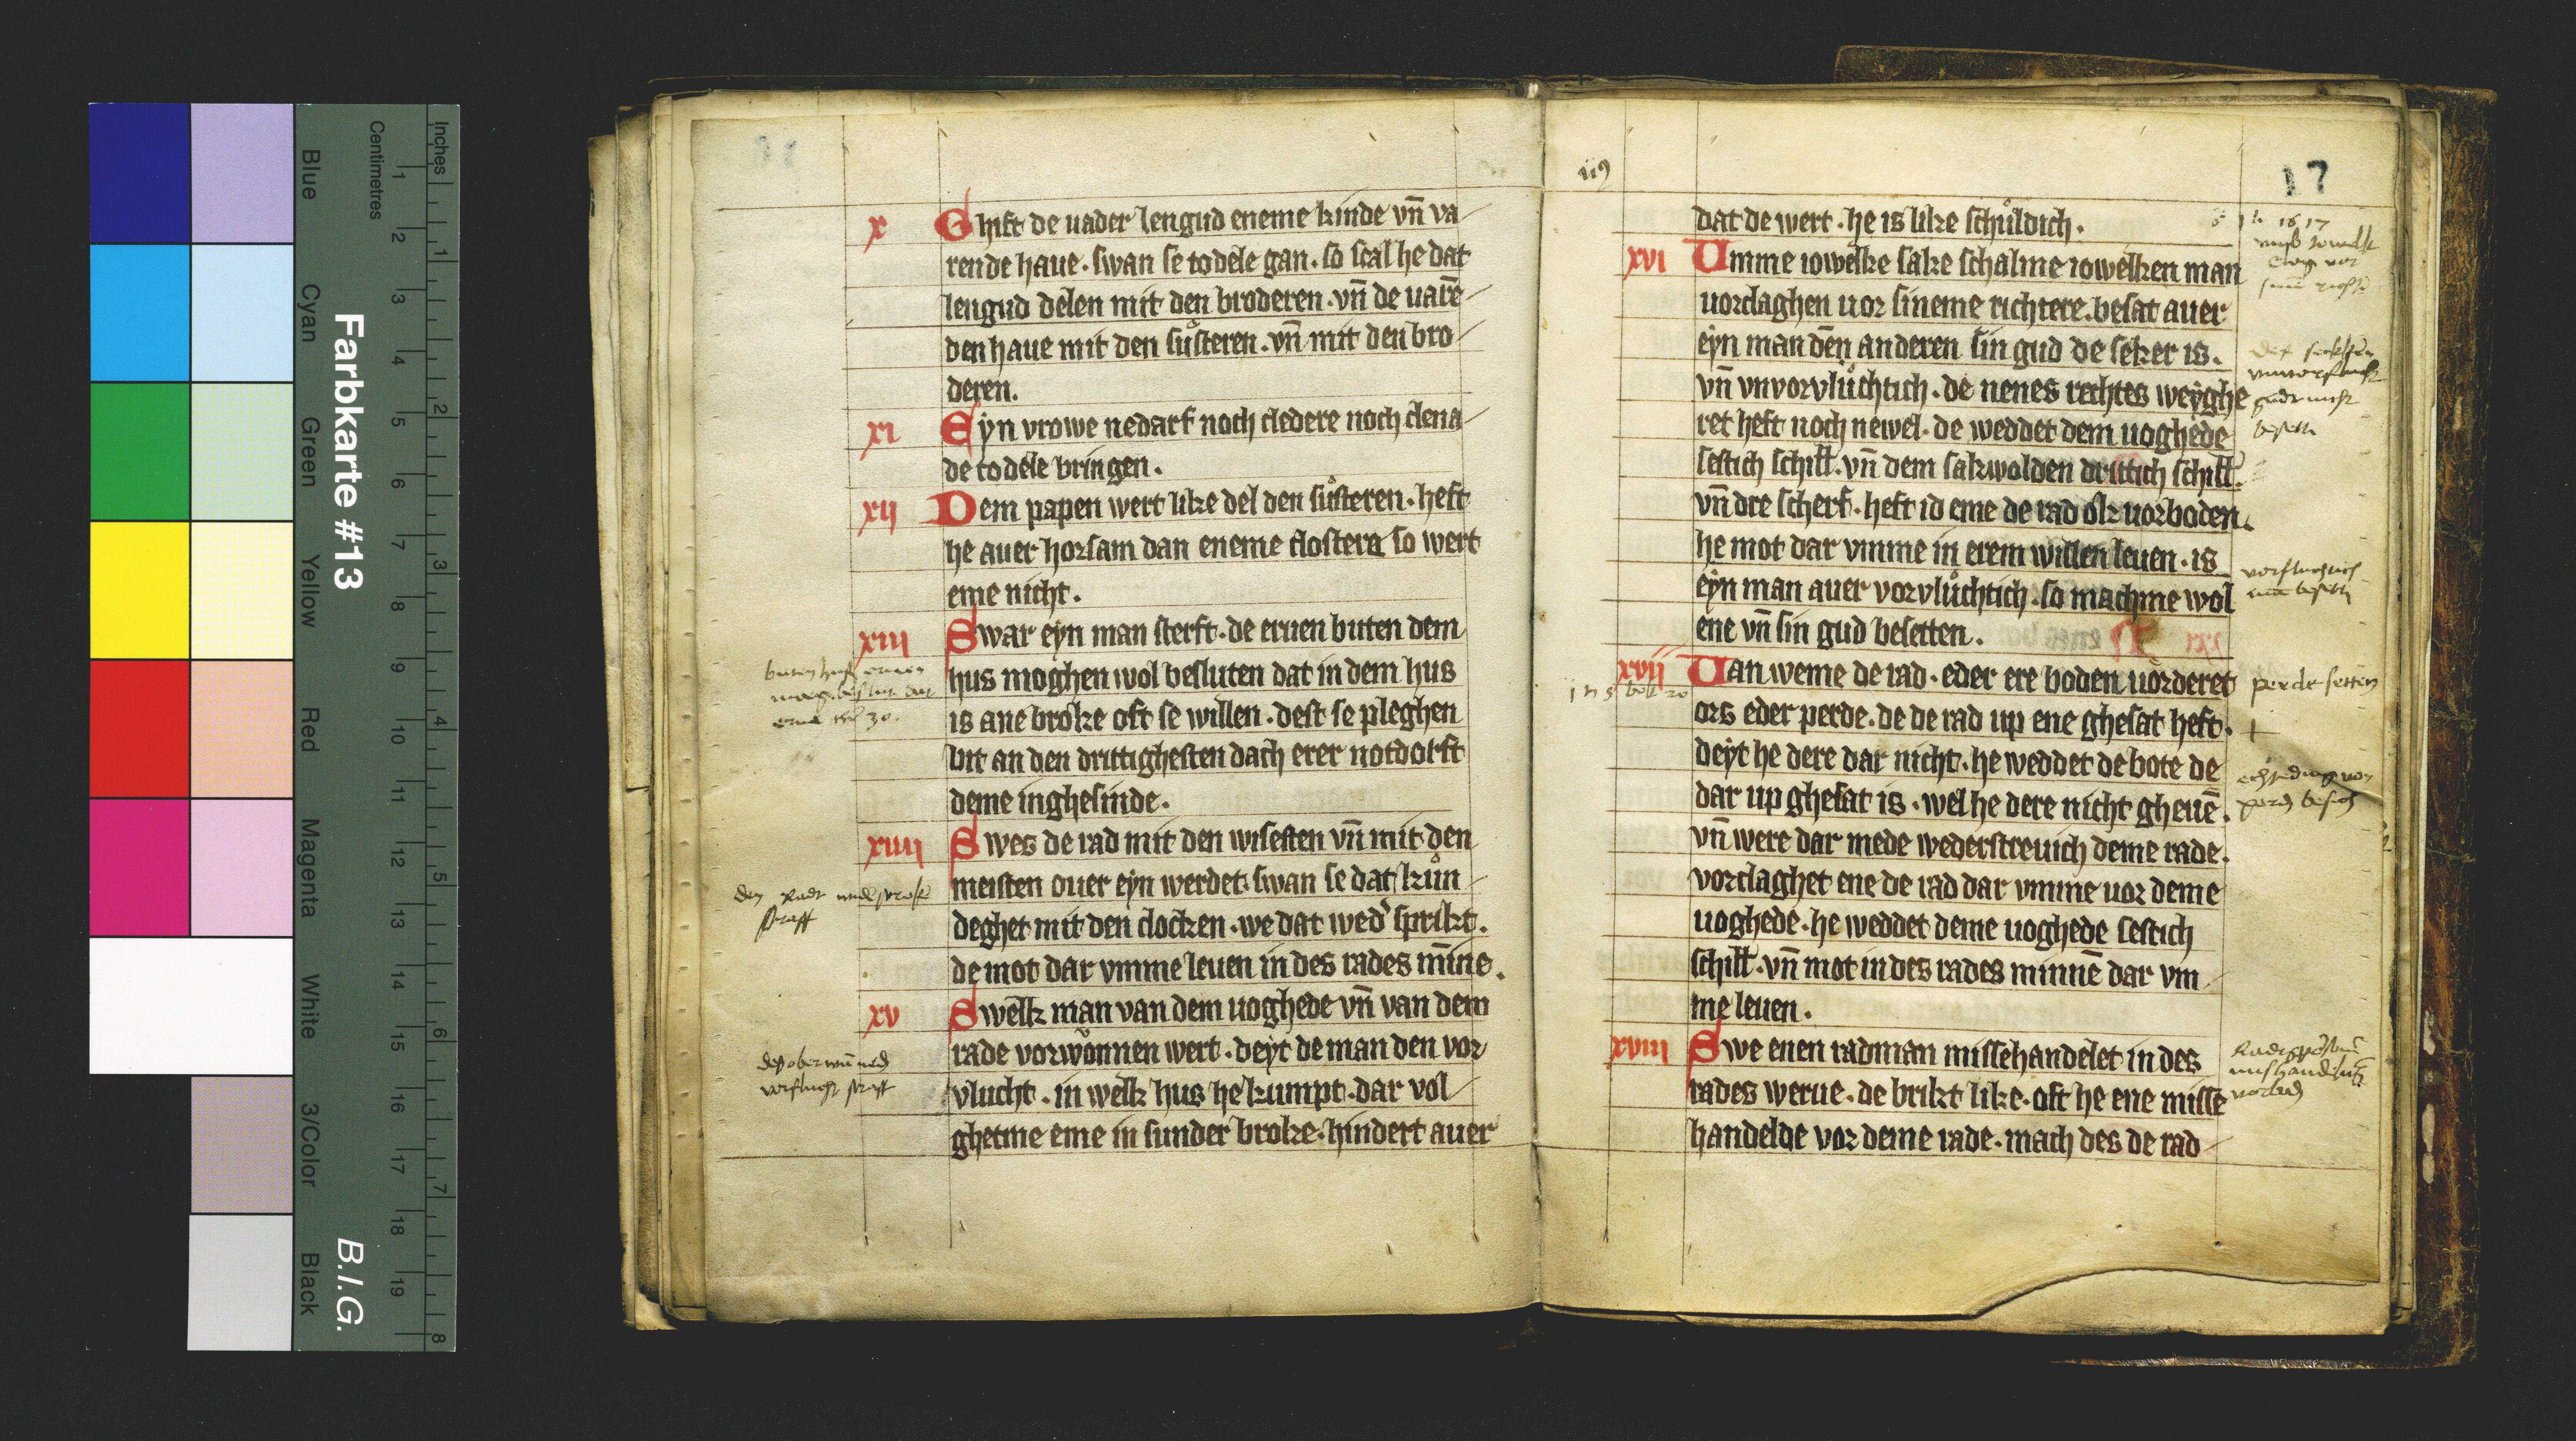 Inches
Centimetres
1 2 3 4 5 6 7 8 9 10 11 12 13 14 15 16 17 18 19
1 2 3 4 5 6 7 8
Blue Cyan Green Yellow Red Magenta White 3/Color Black
Farbkarte #13
B.I.G.
x Ghift de uader lengud eneme kinde vn̄ va
rende haue. swan se to dele gan. so scal he dat
lengud delen mit den broderen. vn̄ de uarē
den haue mit den sůsteren. vn̄ mit den bro
deren.
xi Eyn vrowe nedarf noch cledere noch clena
de to dele bringen.
xij Dem papen wert like del den sůsteren. heft
he auer horsam dan eneme clostere so wert
eme nicht.
xiij Swar eyn man sterft. de eruen buten dem
hus moghen wol besluten dat in dem hus
is ane broke oft se willen. dest se pleghen
bit an den drittighesten dach erer notdorft
deme inghesinde.
xiiij Swes de rad mit den wisesten vn̄ mit den
meisten ouer eyn werdet. swan se dat kůn
deghet mit den clocken. we dat wed' sprikt.
de mot dar vmme leuen in des rades mīne.
xv Swelk man van dem uoghede vn̄ van dem
rade vorwůnnen wert. deyt de man den vor
vlucht. in welk hus he kumpt. dar vol
ghetme eme in sunder broke. hindert auer
17
dat de wert. he is like schůldich.
xvi Umme iowelke sake schalme iowelken man
uorclaghen uor sineme richtere. besat auer
eyn man den anderen sin gud de seker is.
vn̄ vnvorvlůchtich. de nenes rechtes weyghe
ret heft noch newel. de weddet dem uoghede
sestich schill. vn̄ dem sakwolden drittich schill.
vn̄ dre scherf. heft id eme de rad ok uorboden.
he mot dar vmme in erem willen leuen. is
eyn man auer vorvlůchtich. so machme wol
ene vn̄ sin gud besetten.
xvij Uan weme de rad. eder ere boden uorderet
perde setten
ors eder perde. de de rad up ene ghesat heft.
deyt he dere dar nicht. he weddet de bote de
dar up ghesat is. wel he dere nicht gheuē.
vn̄ were dar mede wederstreuich deme rade.
vorclaghet ene de rad dar vmme uor deme
uoghede. he weddet deme uoghede sestich
schill. vn̄ mot in des rades minnē dar vm
me leuen.
xviij Swe enen radman missehandelet in des
rades werue. de brikt like. oft he ene misse
handelde vor deme rade. mach des de rad